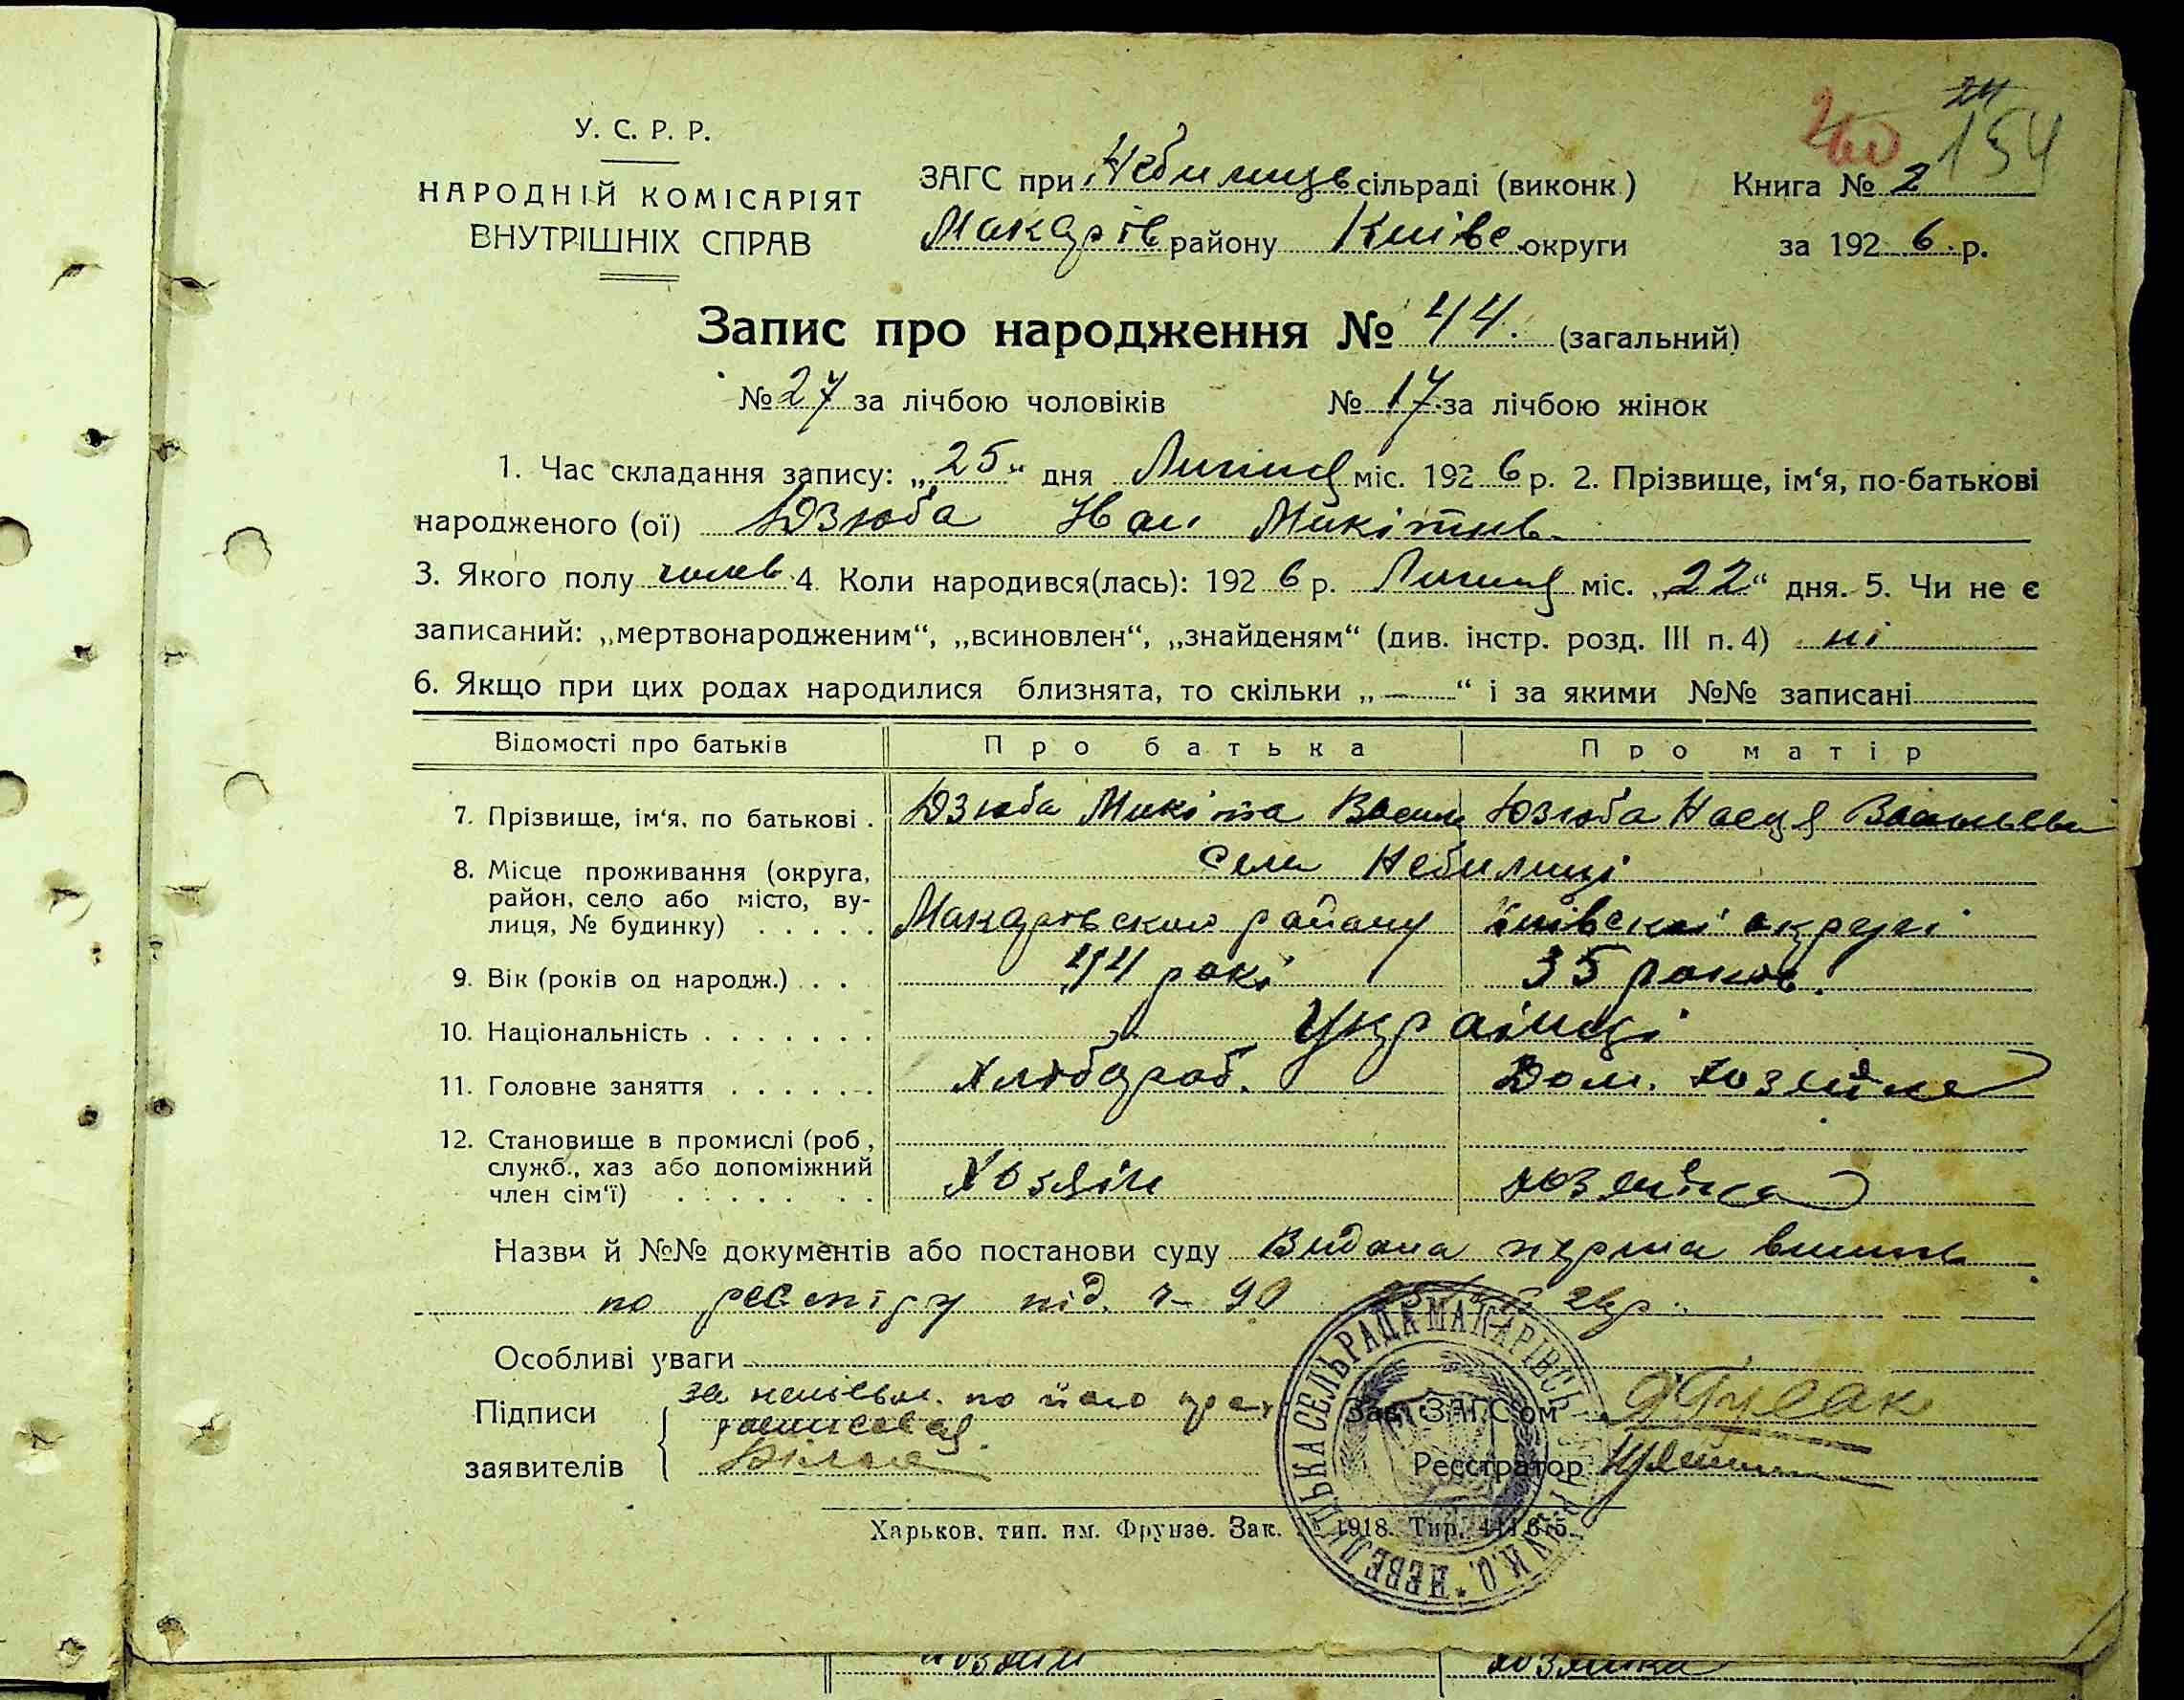 24
260 154
У. С. Р. Р.
НАРОДНІЙ КОМІСАРІЯТ
ВНУТРІШНІХ СПРАВ
ЗАГС при Небилиць сільраді (виконк.) Книга № 2
Макарів району Київс округи за 1926 р.
Запис про народження № 44. (загальний)
№ 27 за лічбою чоловіків № 17 за лічбою жінок
1. Час складання запису: „25“ дня Липця міс. 1926 р. 2. Прізвище, ім‘я, по-батькові
народженого (ої) Дзюба Іван Микітив.
3. Якого полу чолов 4. Коли народився(лась): 1926 р. Липця міс. „22“ дня. 5. Чи не є
записаний: „мертвонародженим“, „всиновлен“, „знайденям“ (див. інстр. розд. III п. 4) ні
6. Якщо при цих родах народилися близнята, то скільки „—“ і за якими №№ записані
Відомості про батьків Про батька Про матір
7. Прізвище, ім‘я, по батькові . Дзюба Микіта Васил Дзюба Настя Васильевн
8. Місце проживання (округа, село Небилиці
район, село або місто, ву-
лиця, № будинку) . . . . . Макарівского району Київскої округи
9. Вік (років од народж.) . . . 44 рокі 35 років.
10. Національність . . . . . . . Українці
11. Головне заняття . . . . . . Хлібороб. Дом. хозяйка
12. Становище в промислі (роб,
служб., хаз або допоміжний
член сім‘ї) . . . . . . Хозяін хозяйка
Назви й №№ документів або постанови суду Видана перша випись
по реєстру під. ч- 90
Особливі уваги
Підписи за неписьм. по його
росписався
заявителів
Зав. ЗАГС‘ом
Реєстратор
НЕБЕЛИЦЬКА СЕЛЬРАДА МАКАРІВСЬК
Харьков. тип. им. Фрунзе. Зак. 1918. Тир.
хозяін хозяйка